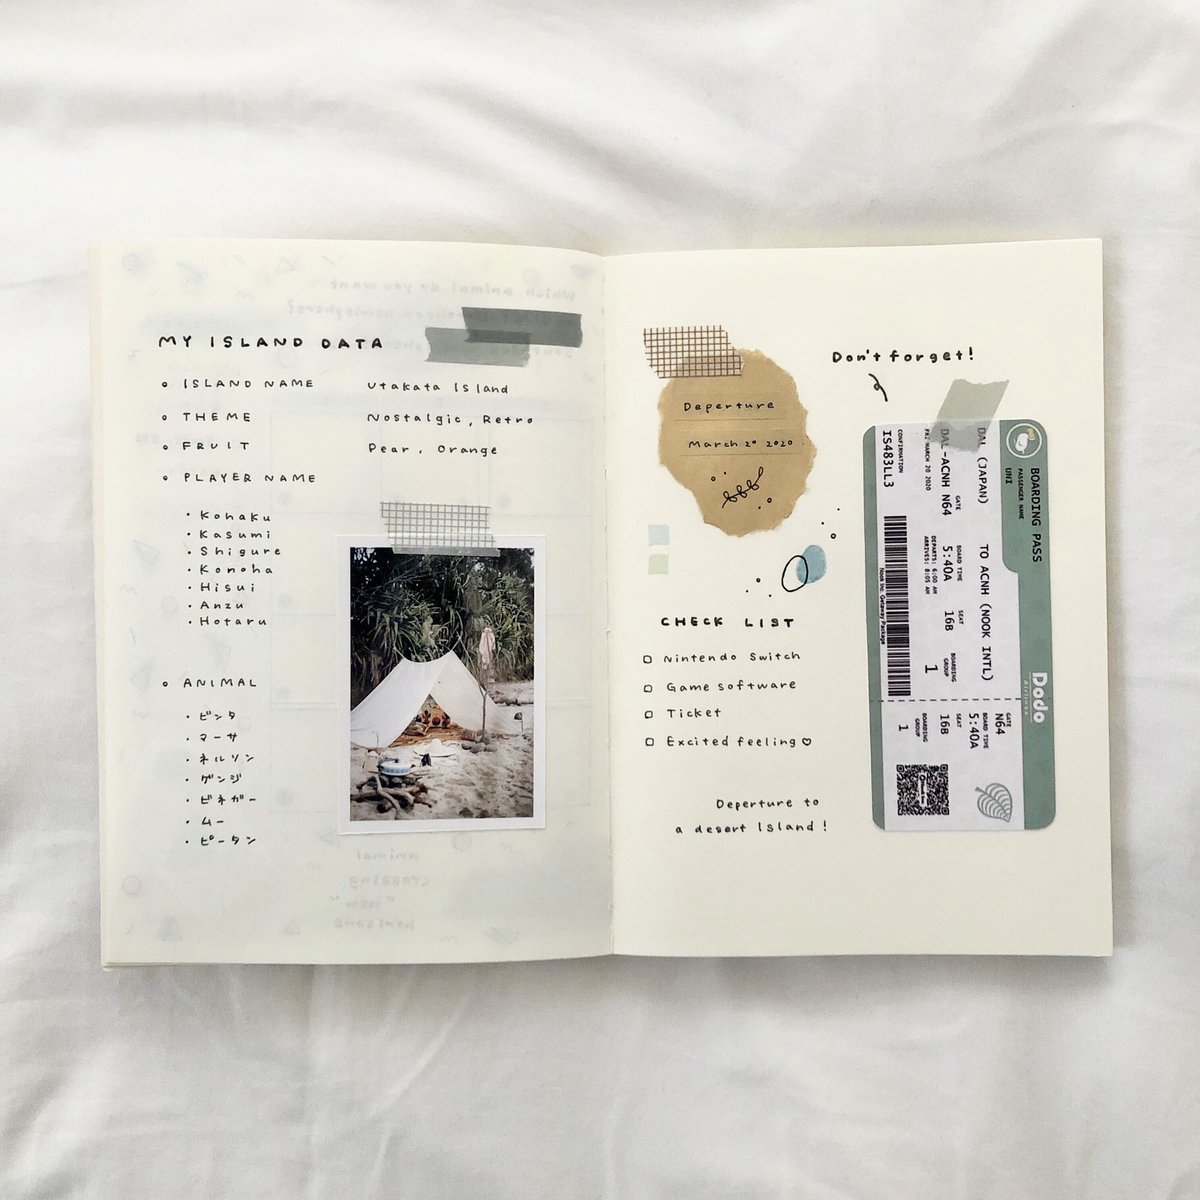 MY ISLAND DATA
ISLAND NAME Utakata Island
THEME Nostalgic, Retro
FRUIT Pear, Orange
PLAYER NAME
・Kohaku
・Kasumi
・Shigure
・Konoha
・Hisui
・Anzu
・Hotaru
ANIMAL
・ビンタ
・マーサ
・ネルソン
・ゲンジ
・ビネガー
・ムー
・ピータン
Deperture
March 20 2020
CHECK LIST
Nintendo Switch
Game software
Ticket
Excited feeling♡
Deperture to
a desert Island!
Don't forget!
BOARDING PASS
PASSENGER NAME
UNI
DAL (JAPAN) TO ACNH (NOOK INTL)
DAL-ACNH N64
GATE
BOARD TIME
5:40A
SEAT
16B
BOARDING GROUP
1
FRI MARCH 20 2020
DEPARTS: 6:00 AM
ARRIVES: 8:05 AM
CONFIRMATION
IS483LL3
Nook Inc. Getaway Package
Dodo
Airlines
GATE
N64
BOARD TIME
5:40A
SEAT
16B
BOARDING GROUP
1